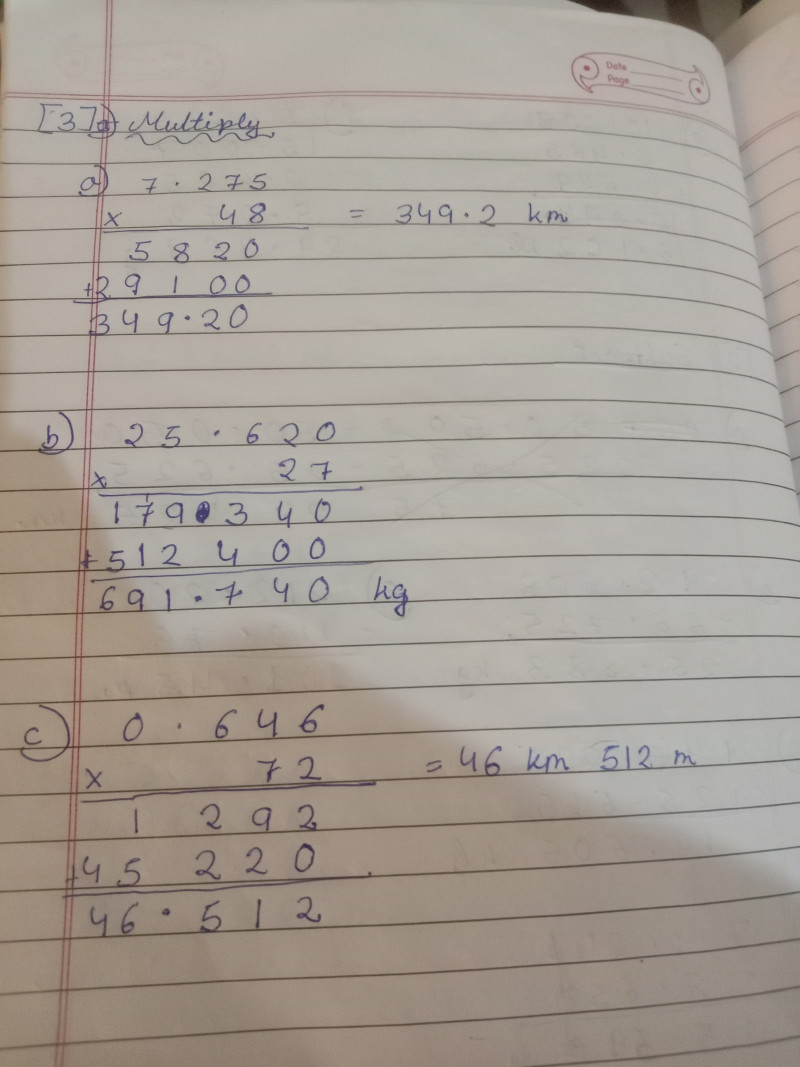 Date
Page
[3] a) Multiply
a) 7.275
x 48 = 349.2 km
5820
+29100
349.20
b) 25.620
x 27
179.340
+512400
691.740 kg
c) 0.646
x 72 = 46 km 512 m
1292
+45220
46.512